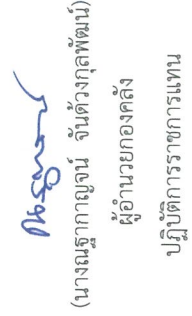 (นางณฐากาญจน์ จันด้วงกุลพัฒน์)
ผู้อำนวยกองคลัง
ปฏิบัติการราชการแทน